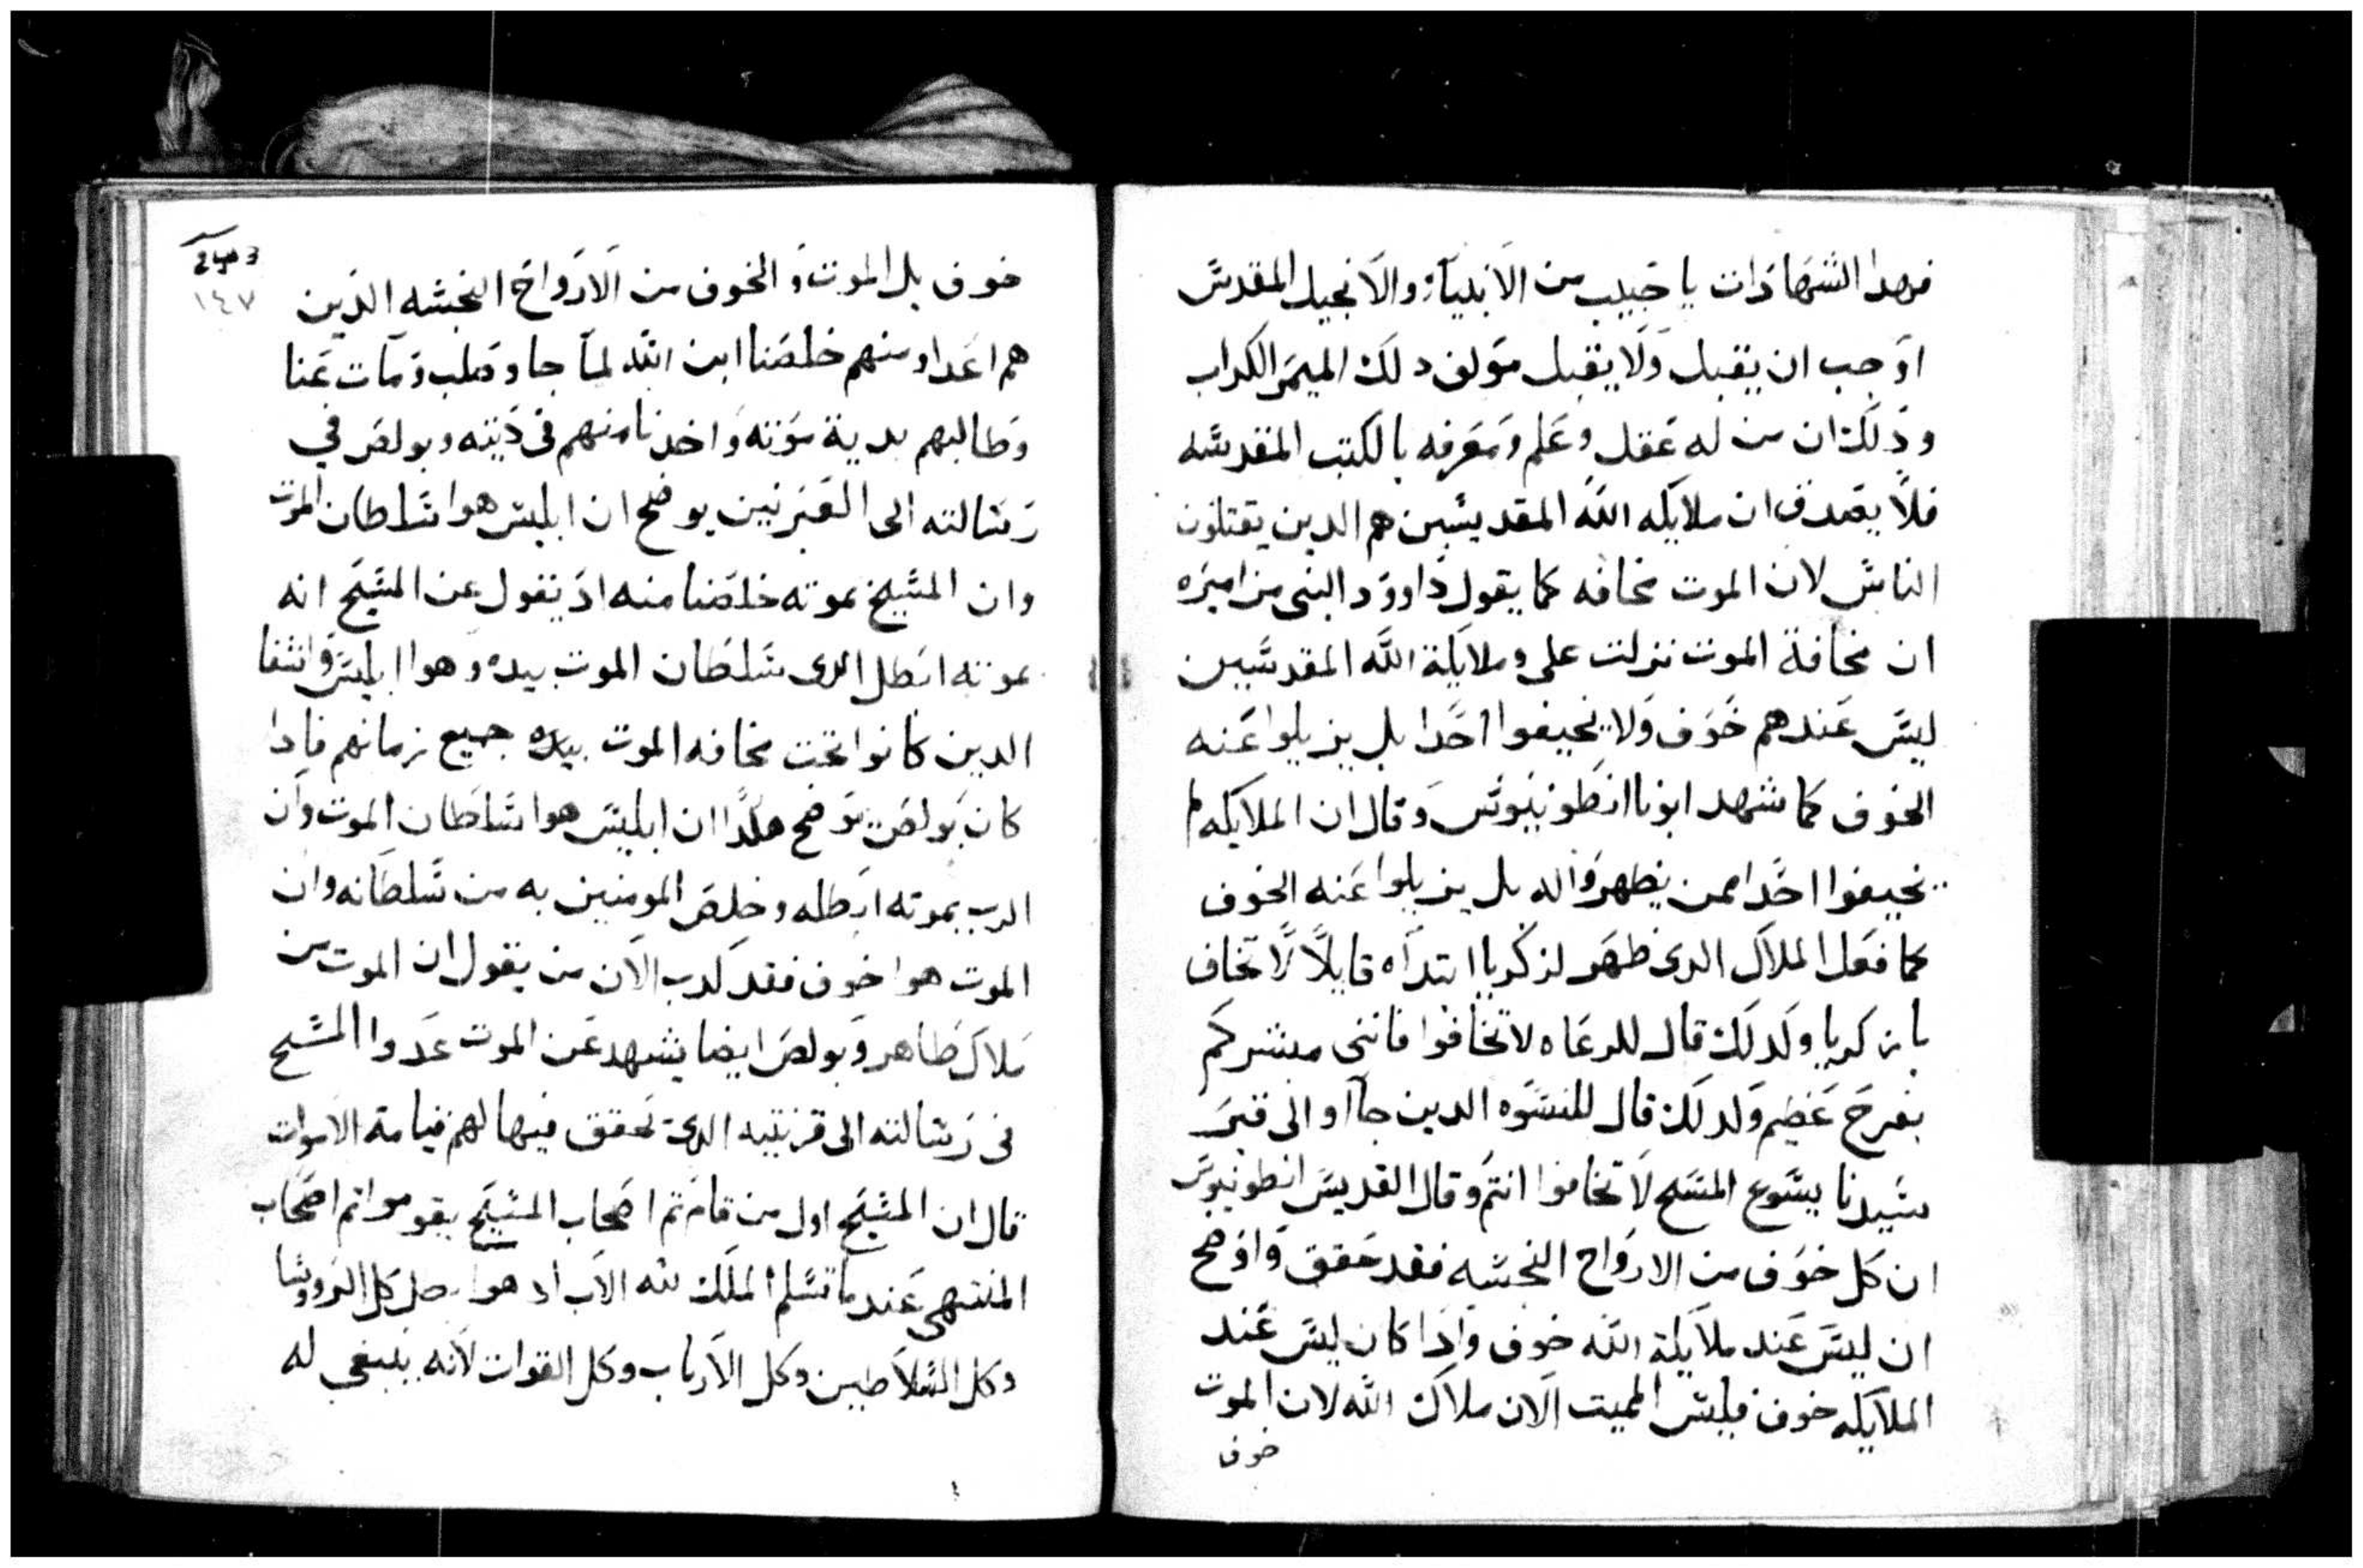 فهدا الشهادات يا حبيب من الانبياء والانجيل المقدس
اوجب ان يقبل ولا يقبل مولف دلك الميمر الكداب
ودلك ان من له عقل وعلم ومعرفه بالكتب المقدسه
فلا يصدق ان ملايكه الله المقديسين هم الدين يقتلون
الناس لان الموت مخافه كما يقول داوود النبى مزاميره
ان مخافة الموت نزلت على وملايكة الله المقدسين
ليس عندهم خوف ولا يخيفوا احدا بل يزيلوا عنه
الخوف كما شهد ابونا انطونيوس وقال ان الملايكه لم
يخيفوا احدا ممن يظهروا له بل يزيلوا عنه الخوف
كما فعل الملاك الدى ظهر لزكريا ابتداه قايلا لا تخاف
يا زكريا ولدلك قال للرعاه لا تخافوا فاننى مبشركم
بفرح عظيم ولدلك قال للنسوه الدين جاآوا الى قبر
سيدنا يسوع المسيح لا تخافوا انتم وقال القديس انطونيوس
ان كل خوف من الارواح النجسه فقد حقق واوضح
ان ليس عند ملايكة الله خوف وادا كان ليس عند
الملايكه خوف فليس المميت الان ملاك الله لان الموت
خوف
١٤٧
خوف بل الموت والخوف من الارواح النجسه الدين
هم اعدا ومنهم خلصنا ابن الله لما جا وصلب ومات عنا
وطالبهم بدية موته واخدنا منهم فى ديته وبولص في
رسالته الى العبرنيين يوضح ان ابليس هوا سلطان الموت
وان المسيح بموته خلصنا منه اد يقول عن المسيح انه
بموته ابطل الدى سلطان الموت بيده وهوا ابليس
الدين كانوا تحت مخافه الموت جميع زمانهم فادا
كان بولص يوضح هكدا ان ابليس هوا سلطان الموت وان
الرب بموته ابطله وخلص المومنين به من سلطانه وان
الموت هوا خوف فقد كدب الان من يقول ان الموت من
ملاك طاهر وبولص ايضا يشهد عن الموت عدوا المسيح
فى رسالته الى قرنتيه الدى تحقق فيها لهم قيامة الاموات
قال ان المسيح اول من قام تم اصحاب المسيح يقوموا تم اصحاب
المنتهى عندما تسلم الملك لله الاب اد هوا كل الرووسا
وكل السلاطين وكل الارباب وكل القوات لانه ينبغي له